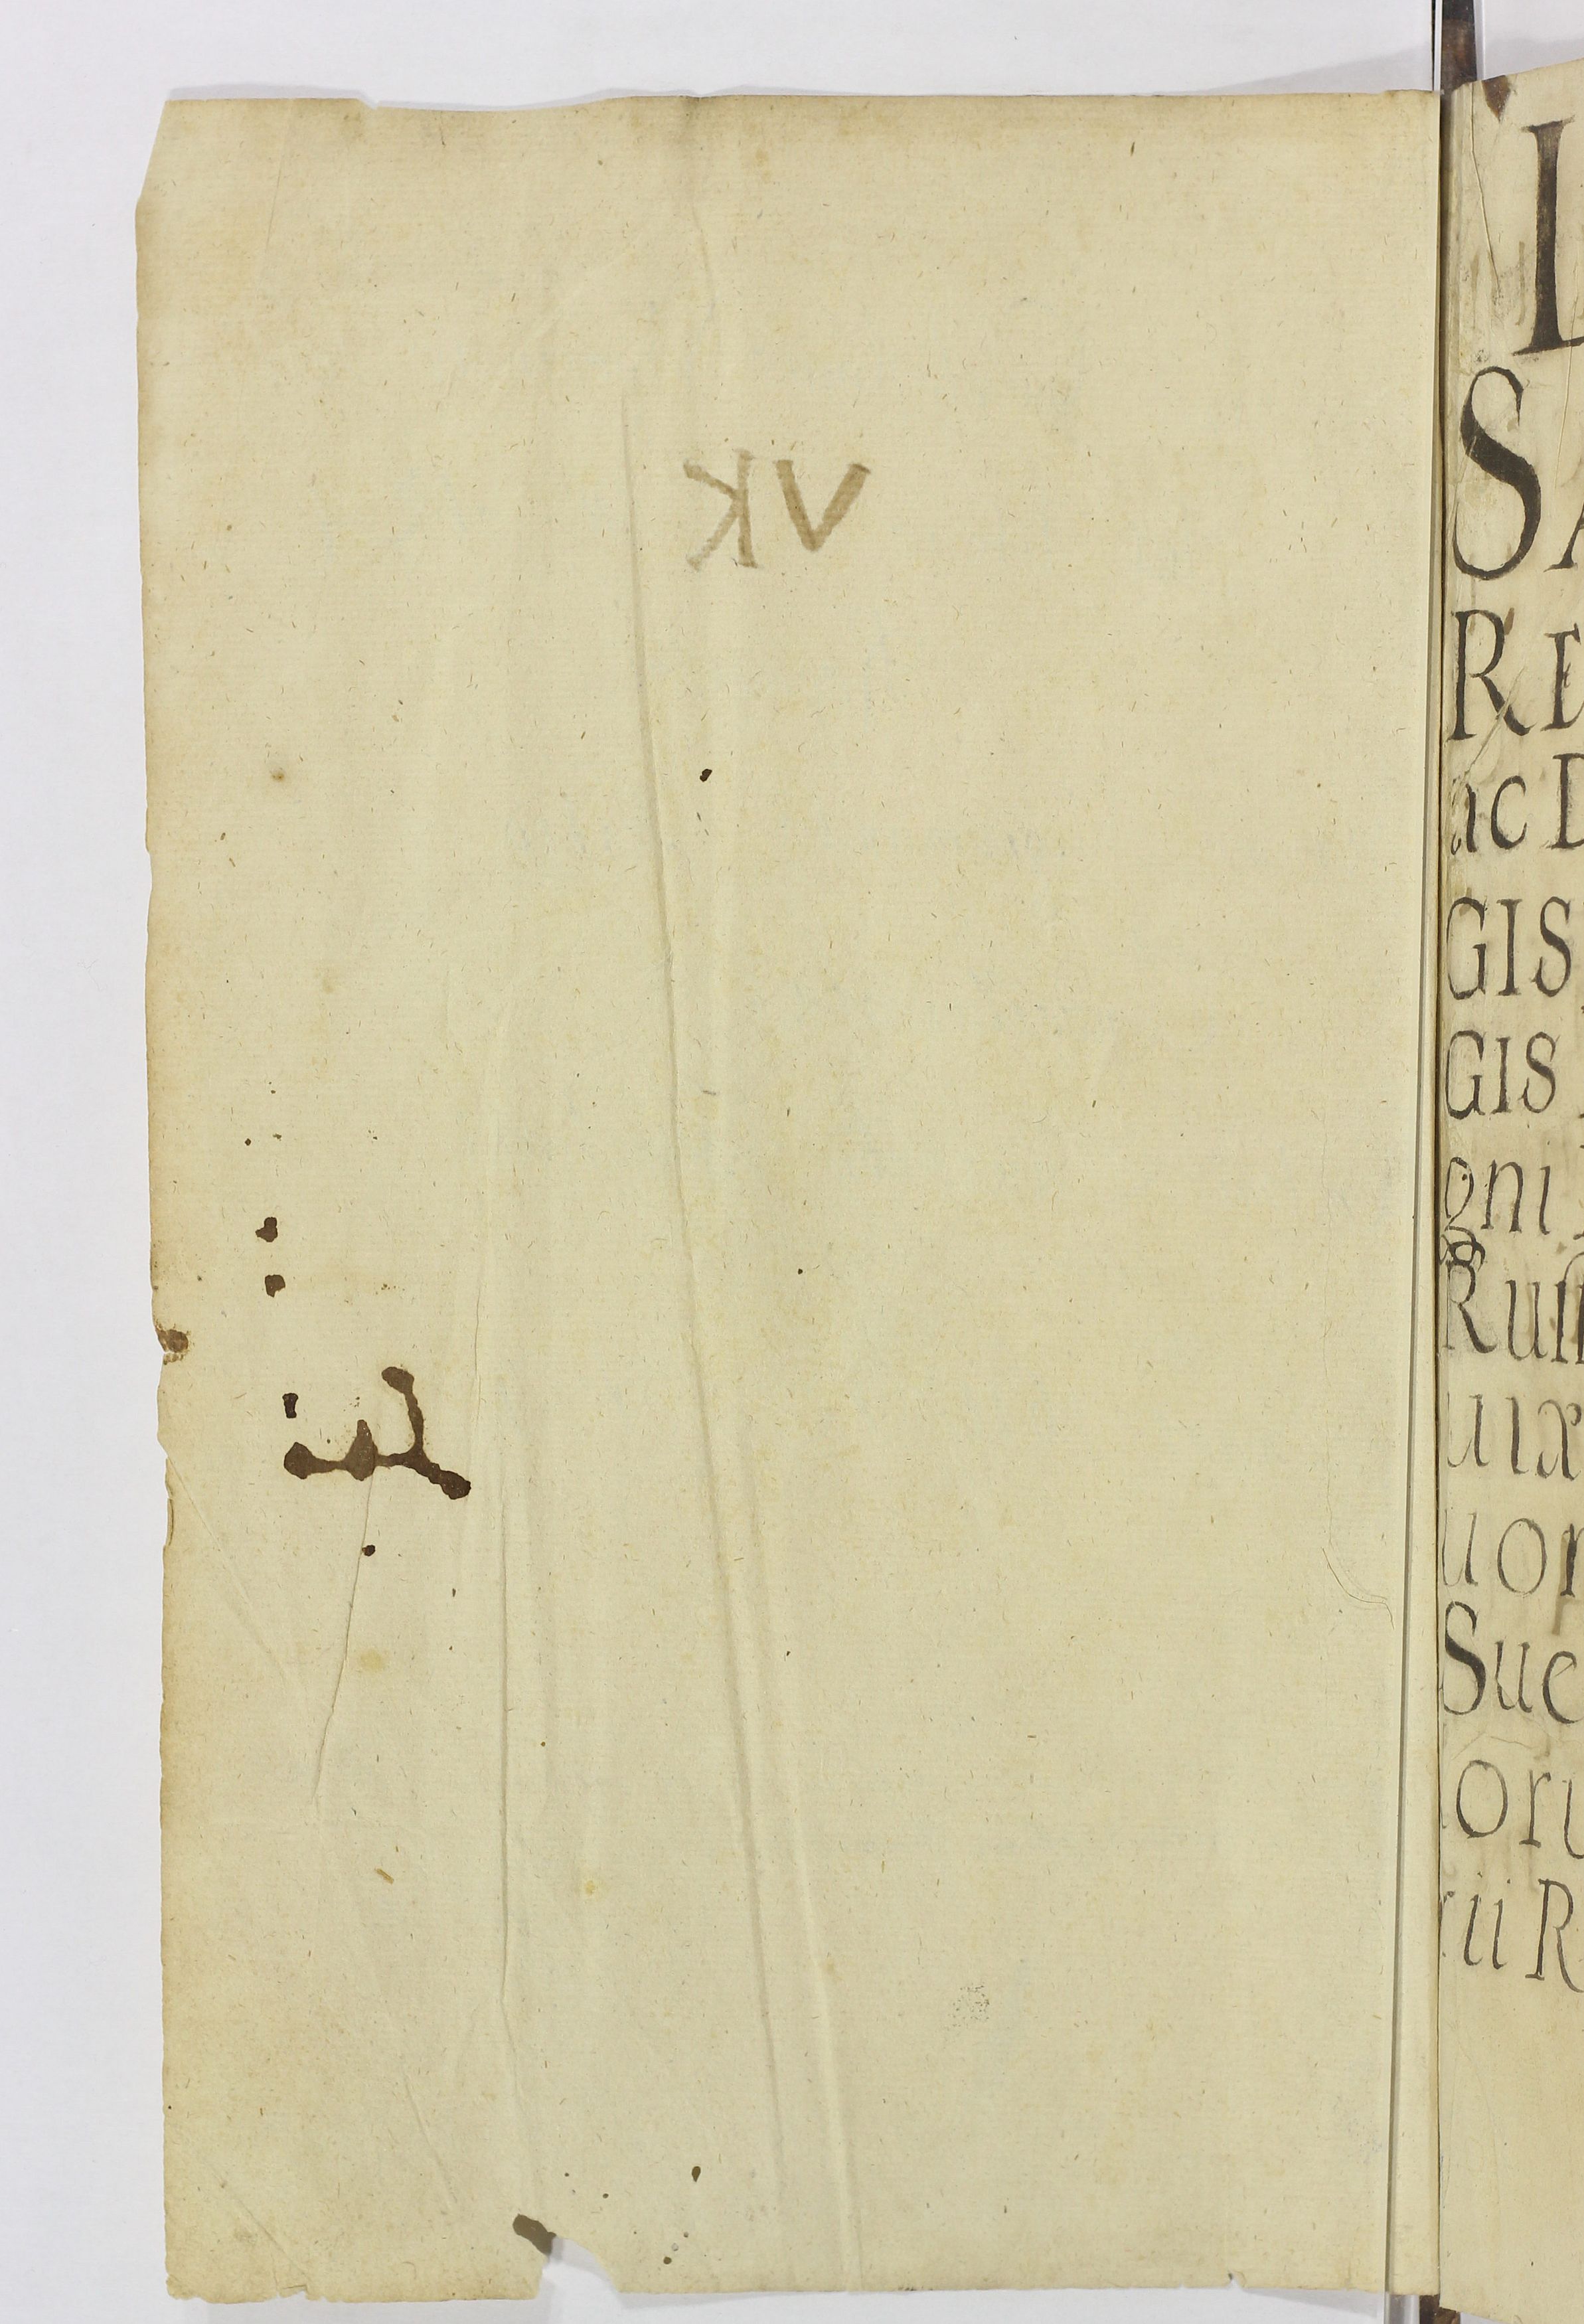 VK
L
SA
RE
ac D
GIS
GIS
gni
Ruſſ
uix
uor
Sue
oru
rii R